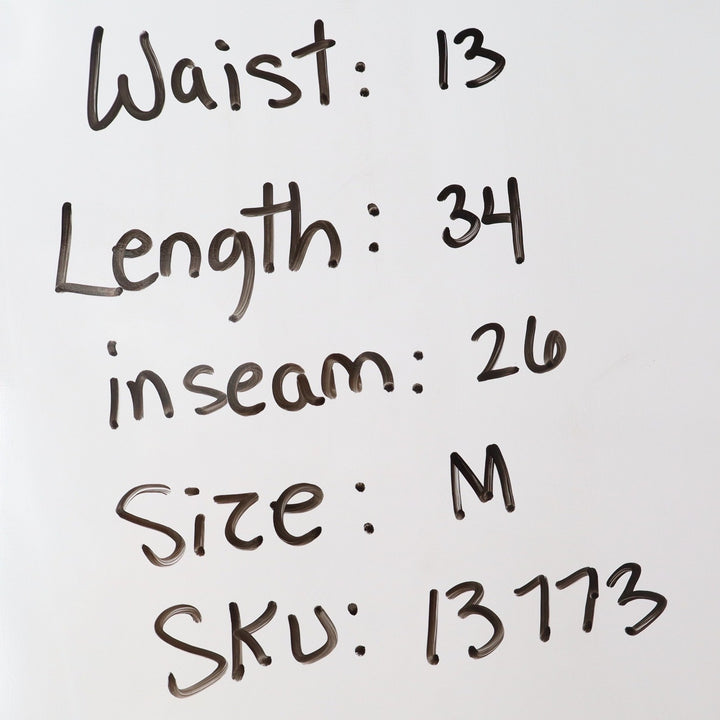 Waist: 13
Length: 34
inseam: 26
Size: M
SKU: 13773